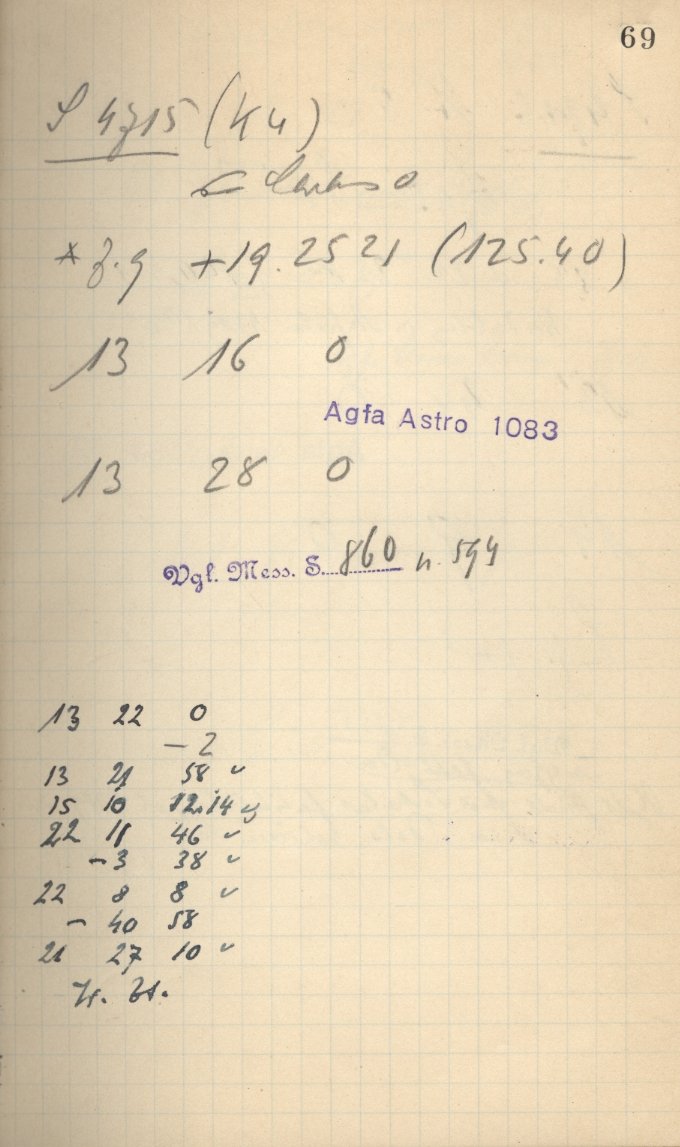 69
S 4715 (K4)
* 8.9 +19.2521 (125.40)
13 16 0
Agfa Astro 1083
13 28 0
Vgl. Mess. S. 860 n. 594
13 22 0
- 2
13 21 58 ✓
15 10 12.14
22 11 46 ✓
- 3 38 ✓
22 8 8 ✓
- 40 58
21 27 10 ✓